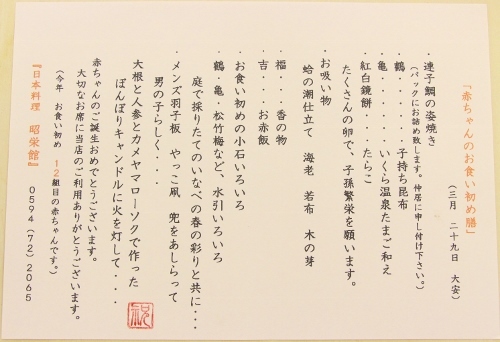 「赤ちゃんのお食い初め膳」
（三月　二十九日　大安）
・連子鯛の姿焼き
（パックにお詰め致します。仲居に申し付け下さい。）
・鶴・・・・・・子持ち昆布
・亀・・・・・・いくら温泉たまご和え
・紅白鏡餅・・・・たらこ
たくさんの卵で、子孫繁栄を願います。
・お吸い物
蛤の潮仕立て　海老　若布　木の芽
・福・・・香の物
・吉・・・お赤飯
・お食い初めの小石いろいろ
・鶴・亀　松竹梅など、水引いろいろ
庭で採りたてのいなべの春の彩りと共に・・・
・メンズ羽子板　やっこ凧　兜をあしらって
男の子らしく・・・・
大根と人参とカメヤマローソクで作った
ぼんぼりキャンドルに火を灯して・・・・
赤ちゃんのご誕生おめでとうございます。
大切なお席に当店のご利用ありがとうございます。
（今年　お食い初め　12組目の赤ちゃんです。）
『日本料理　昭栄館』　0594（72）2065
祝